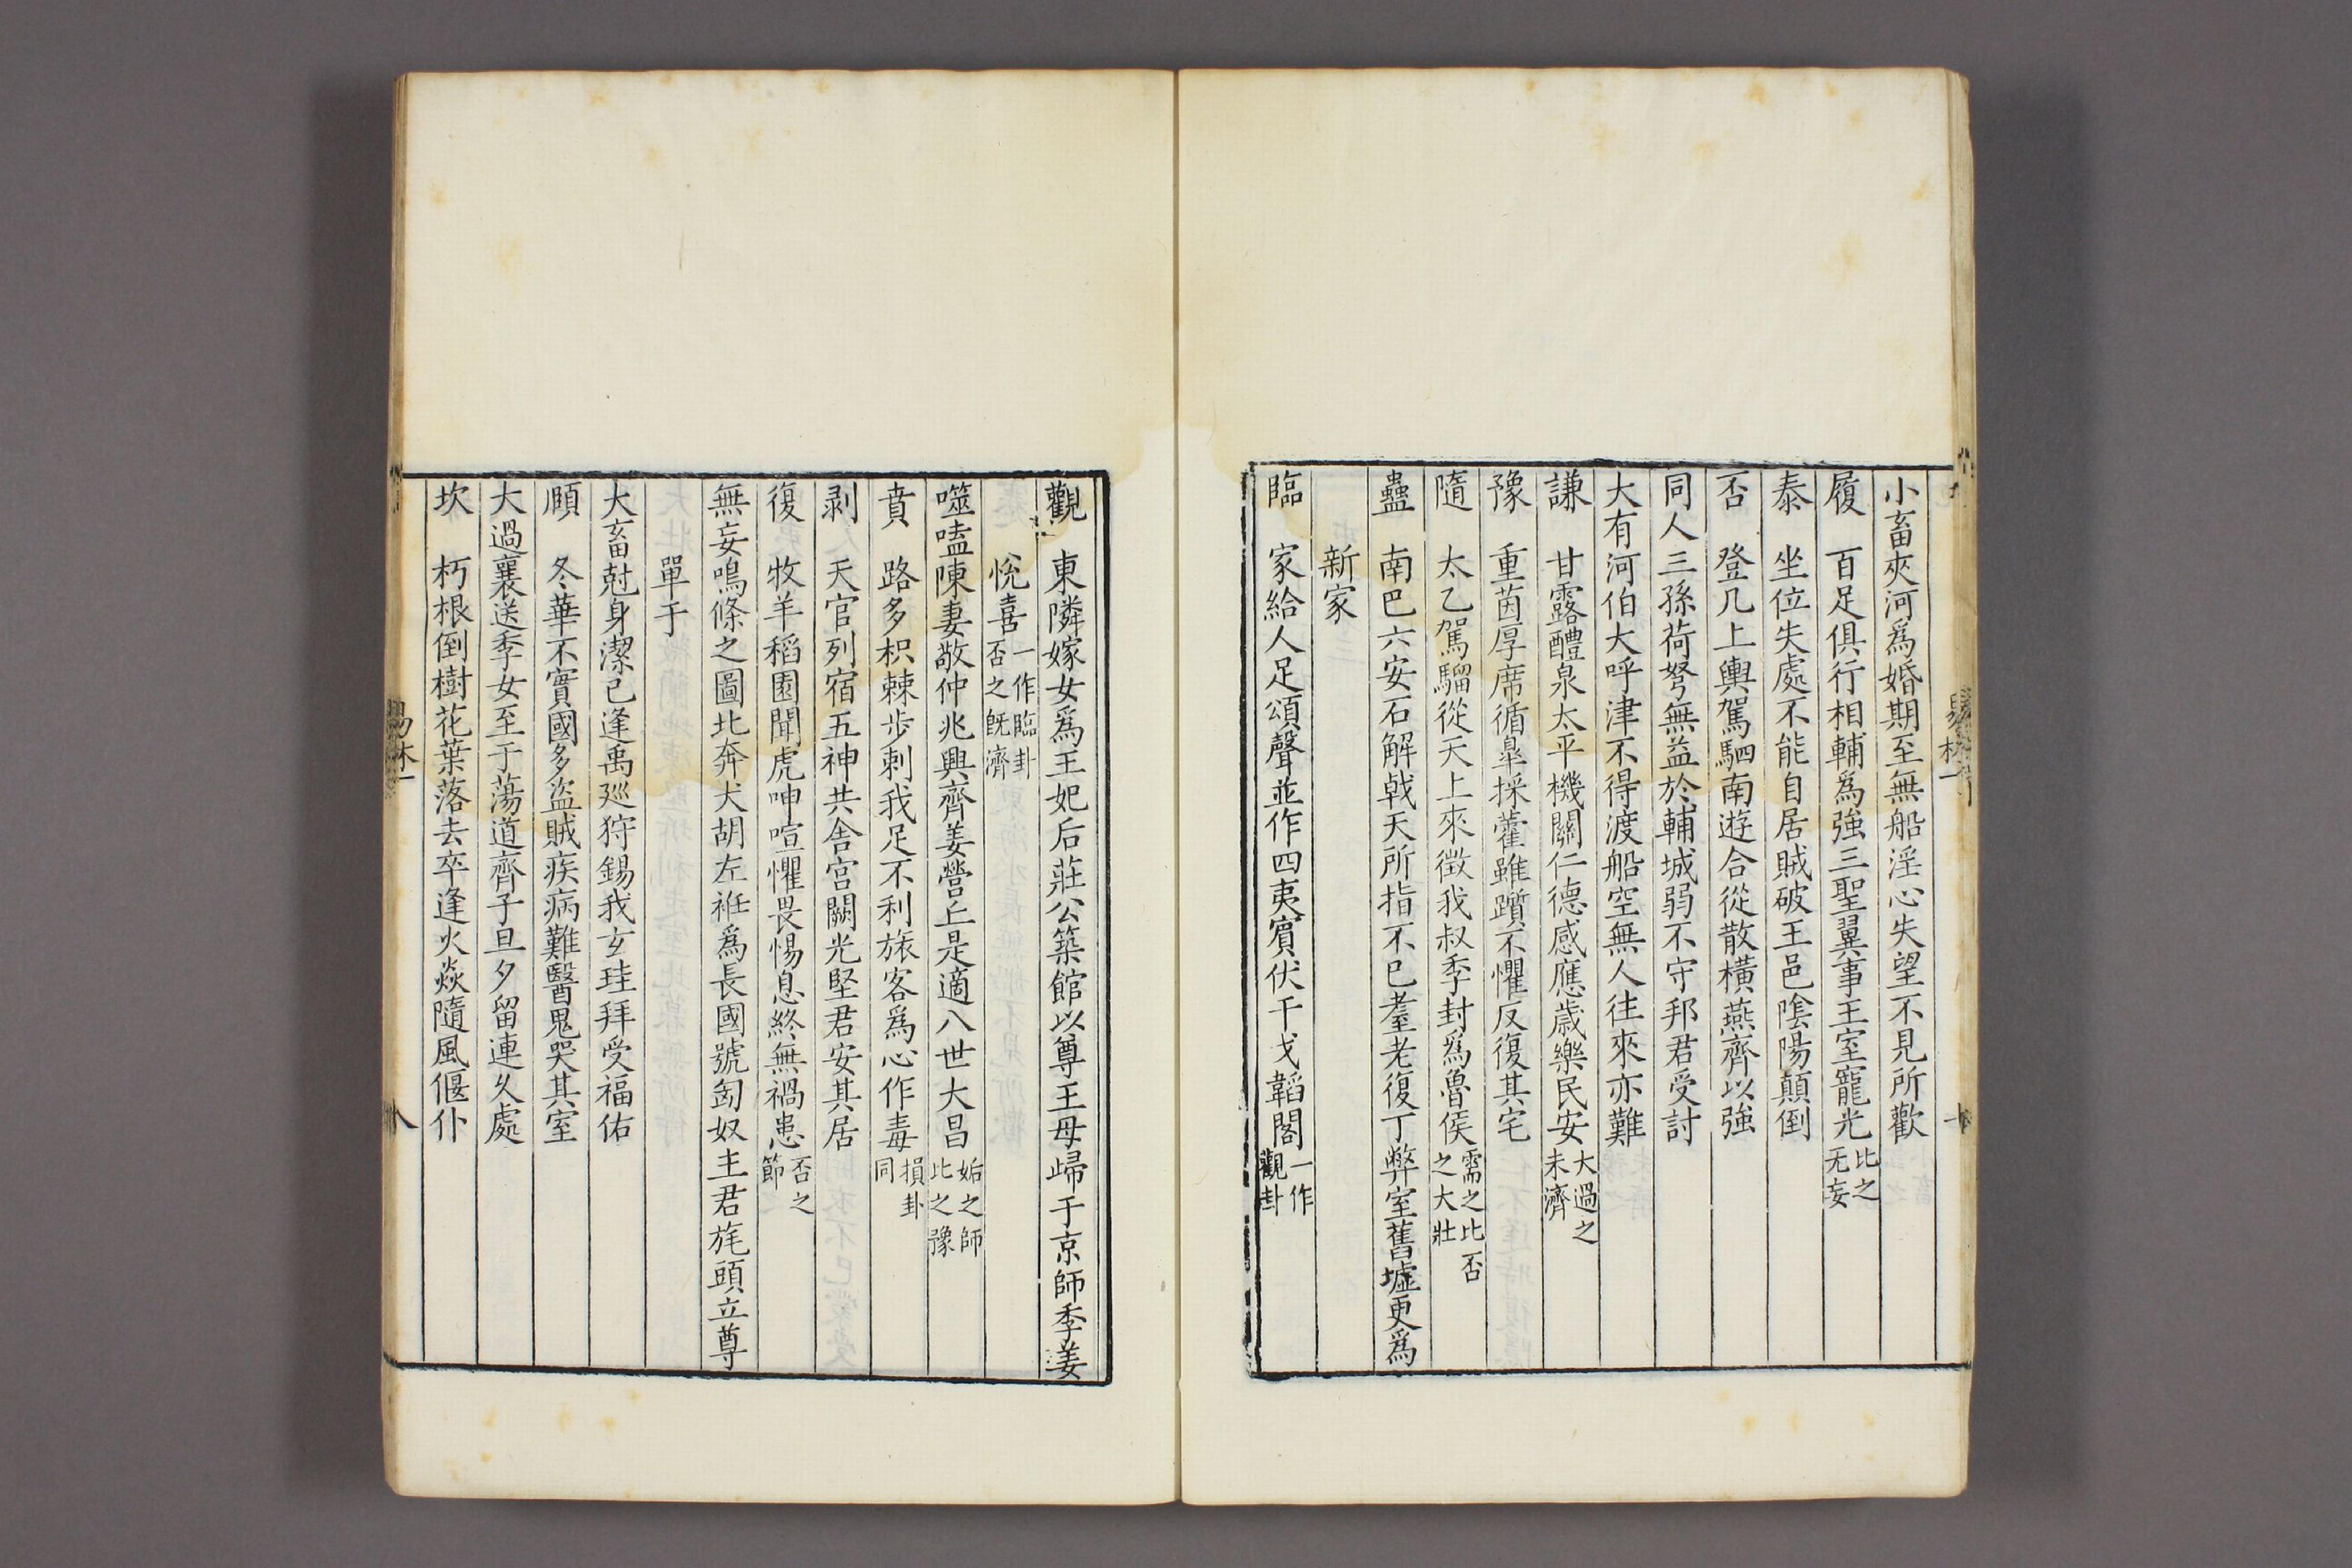 小畜夾河爲婚期至無船淫心失望不見所歡
履　百足俱行相輔爲強三聖翼事王室寵光比之无妄
泰　坐位失處不能自居賊破王邑陰陽顛倒
否　登几上輿駕駟南遊合從散橫燕齊以強
同人三孫荷弩無益於輔城弱不守邦君受討
大有河伯大呼津不得渡船空無人往來亦難
謙　甘露醴泉太平機關仁德感應歲樂民安大過之未濟
豫　重茵厚席循皐採藿雖躓不懼反復其宅
隨　太乙駕騮從天上來徵我叔季封爲魯侯需之比否之大壯
蠱　南巴六安石解戟天所指不已耋老復丁弊室舊墟更爲
新家
臨　家給人足頌聲並作四夷賓伏干戈韜閣一作觀卦
觀　東隣嫁女爲王妃后莊公築館以尊王母歸于京師季姜
悅喜一作臨卦否之旣濟
噬嗑陳妻敬仲兆興齊姜營丘是適八世大昌姤之師比之豫
賁　路多枳棘步刺我足不利旅客爲心作毒損卦同
剥　天官列宿五神共舍宫闕光堅君安其居
復　牧羊稻園聞虎呻喧懼畏惕息終無禍患否之節
無妄鳴條之圖北奔犬胡左袵爲長國號匈奴主君旄頭立尊
單于
大畜尅身潔己逢禹廵狩錫我玄珪拜受福佑
頤　冬華不實國多盗賊疾病難醫鬼哭其室
大過襄送季女至于蕩道齊子旦夕留連久處
坎　朽根倒樹花葉落去卒逢火焱隨風偃仆
易林一
八